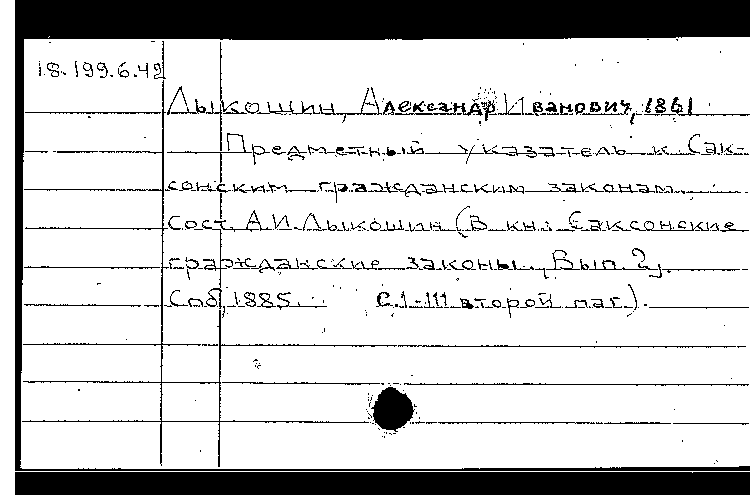 18.199.6.42
Лыкошин, Александр Иванович, 1861
Предметный указатель к Сак-
сонским гражданским законам.
Сост. А.И. Лыкошин (В кн.: Саксонские
гражданские законы., Вып. 2,.
Спб, 1885. С.1-111 второй паг.).